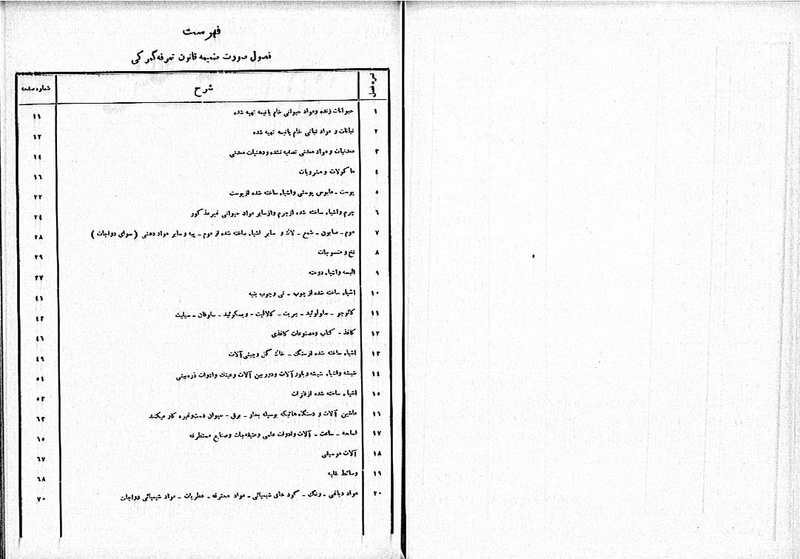 فهرست
فصول صورت ضمیمه قانون تعرفه گمرکی
نمره فصل شرح شماره صفحه
۱ حیوانات زنده و مواد حیوانی خام یا نیمه تهیه شده ۱۱
۲ نباتات و مواد نباتی خام یا نیمه تهیه شده ۱۲
۳ معدنیات و مواد معدنی تصفیه نشده و دهنیات معدنی ۱۴
۴ ماکولات و مشروبات ۱۶
۵ پوست - ملبوس پوستی و اشیاء ساخته شده از پوست ۲۲
۶ چرم و اشیاء ساخته شده از چرم و از سایر مواد حیوانی غیر مذکور ۲۴
۷ موم - صابون - شمع - لاک و سایر اشیاء ساخته شده از موم - پیه و سایر مواد دهنی (سوای دواجات) ۲۸
۸ نخ و منسوجات ۲۹
۹ البسه و اشیاء دوخته ۳۷
۱۰ اشیاء ساخته شده از چوب - نی و چوب پنبه ۴۱
۱۱ کائوچو - سلولوئید - گالالیت - ویسکوئید - سلوفان - ۴۳
۱۲ کاغذ - کتاب و مصنوعات کاغذی ۴۶
۱۳ اشیاء ساخته شده از سنگ - خاک گل و چینی آلات ۴۹
۱۴ شیشه و اشیاء شیشه و بلور آلات و دوربین آلات و عینک و ادوات ذره بینی ۵۱
۱۵ اشیاء ساخته شده از فلزات ۵۳
۱۶ ماشین آلات و دستگاه هائیکه بوسیله بخار - برق - حیوان دست و غیره کار میکند ۶۳
۱۷ اسلحه - ساعت - آلات و ادوات علمی و عتیقه جات و صنایع مستظرفه ۶۵
۱۸ آلات موسیقی ۶۷
۱۹ وسائط نقلیه ۶۸
۲۰ مواد دباغی - رنگ - کود های شیمیائی - مواد محترقه - عطریات - مواد شیمیائی دواجات ۷۰